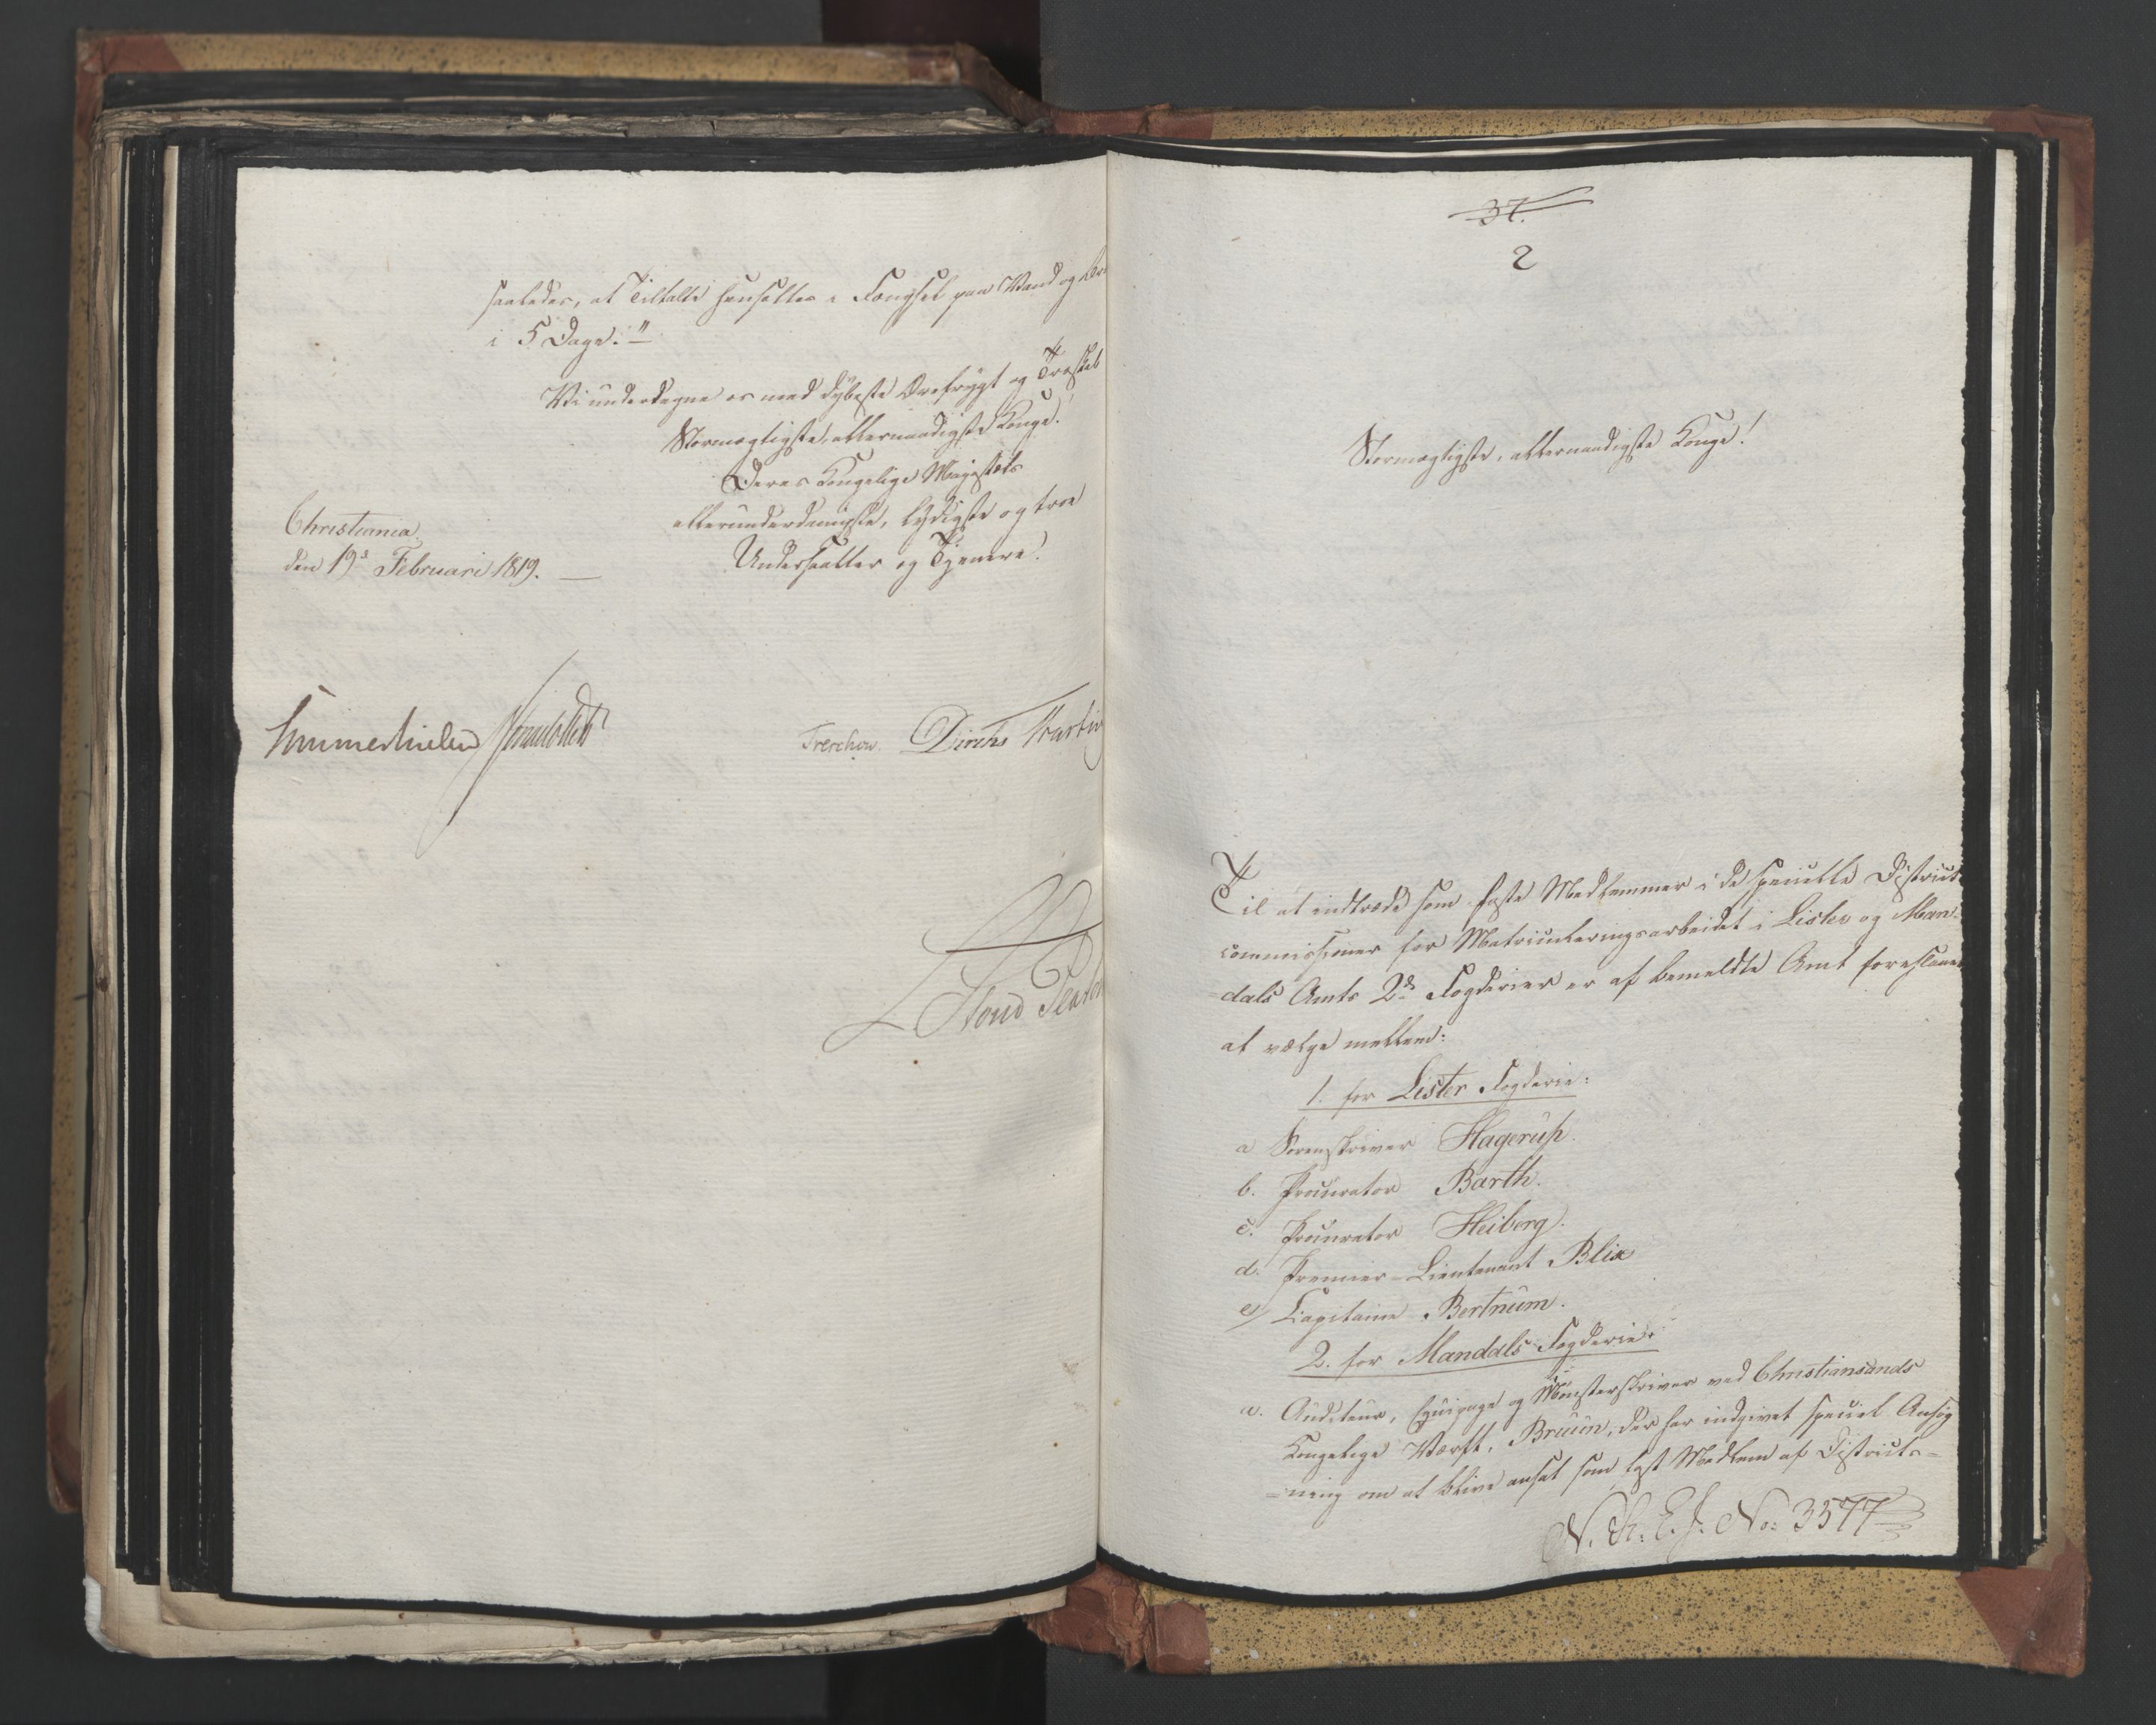 saaledes, at Tiltalte hensættes i Fængsel paa Vand og
i 5 Dage."
Vi underdegne os med dybeste Ærefrygt og Troskab
Stormægtigste, allernaadigste Konge!
Deres Kongelige Majestæts
allerunderdanigste, lydigste og troe
Undersaatter og Tjenere.
Christiania,
den 19d Februari 1819.
Sommerhielm
Treschow. Diriks
37.
2
Stormægtigste, allernaadigste Konge!
Til at indtræde som faste Medlemmer i de specielle District
commissioner for Matriculeringsarbeidet i Lister og Man-
dals Amts 2de Fogderier er af bemeldte Amt foreslaaet
at vælge mellem:
1. for Lister Fogderie:
a Sorenskriver Hagerup.
b. Procurator Barth.
c. Procurator Heiberg.
d. Premier-Lieutenant Blix
e/ Capitaine Bertnum.
2. for Mandals Fogderie:
a. Auditeur, Equipage og Mønsterskriver ved Christiansands
Kongelige Værft, Bruun, der har indgivet speciel Ansøg
=ning om at blive ansat som fast Medlem af Districts-
N. R. E. J. No: 3577